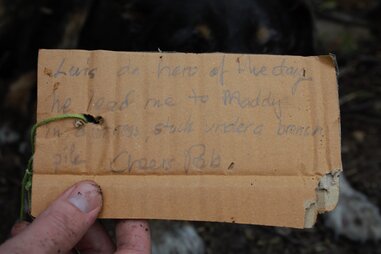 Luis an hero of the day
he lead me to Maddy
in stuck under a branch
pile Cheers Rob